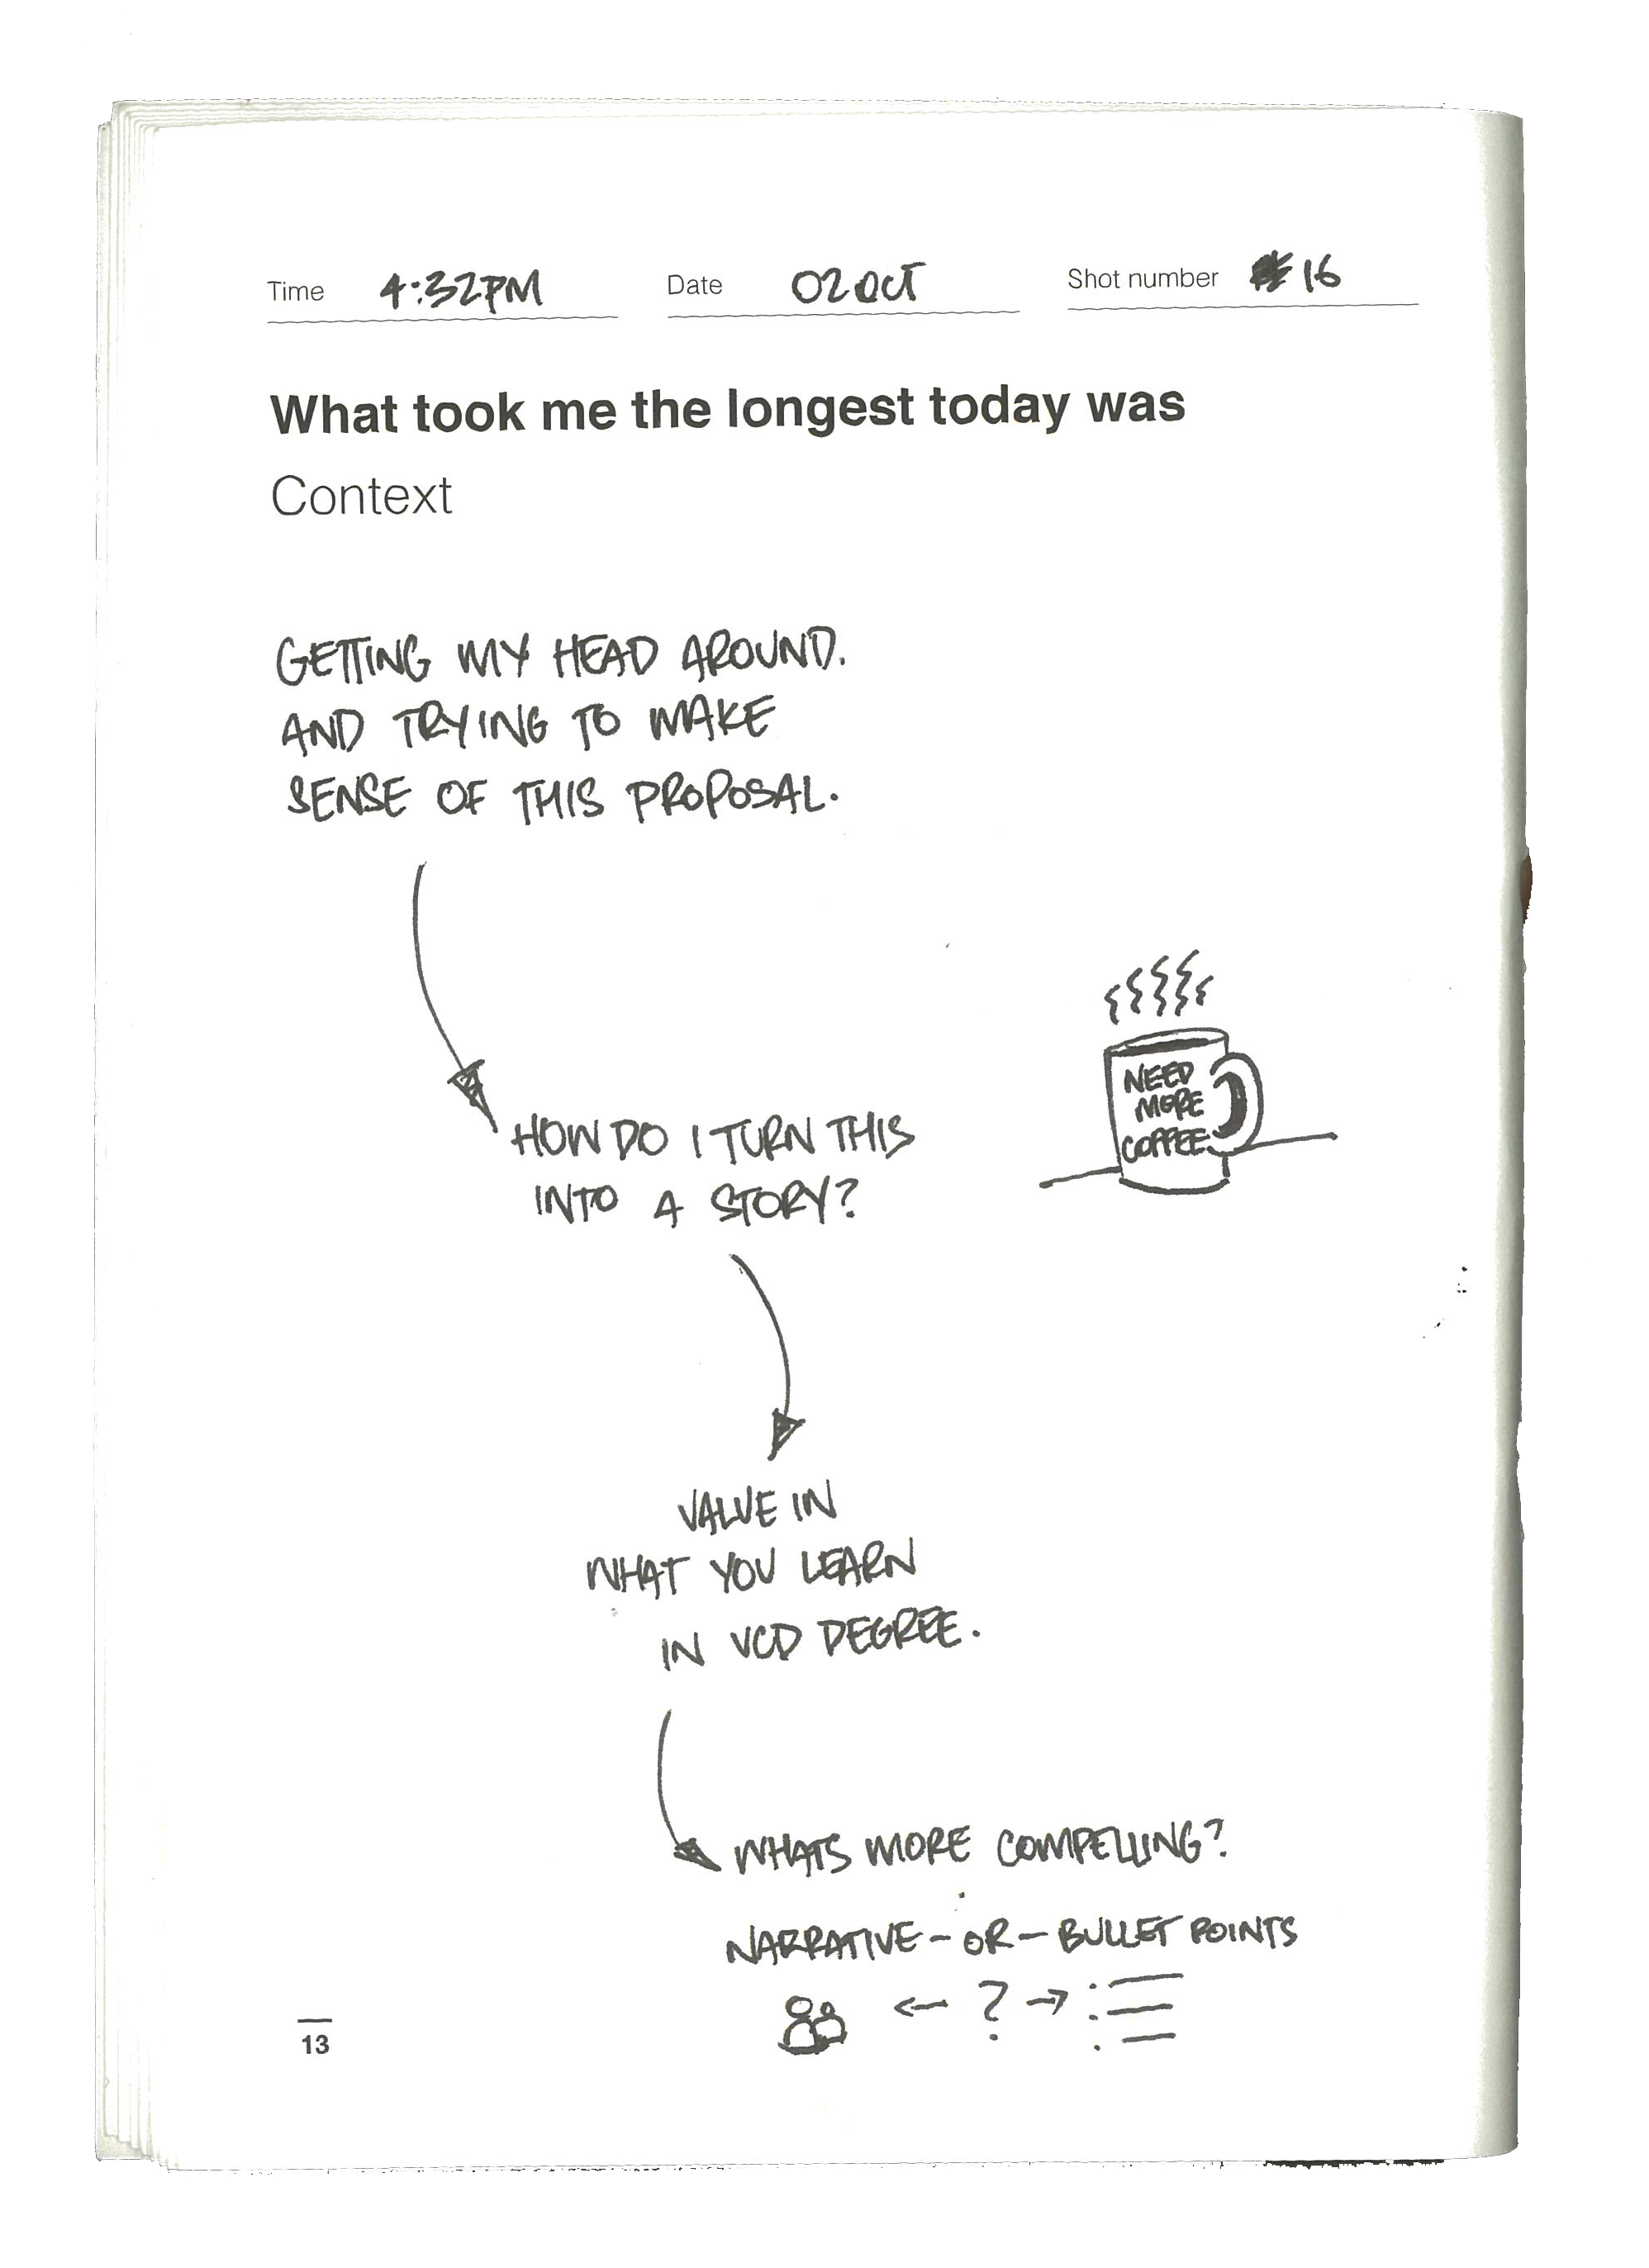 Time 4:32PM Date 02 OCT Shot number #16
What took me the longest today was
Context
GETTING MY HEAD AROUND.
AND TRYING TO MAKE
SENSE OF THIS PROPOSAL.
HOW DO I TURN THIS
INTO A STORY?
NEED
MORE
COFFEE
VALUE IN
WHAT YOU LEARN
IN VCD DEGREE.
WHATS MORE COMPELLING?
NARRATIVE - OR - BULLET POINTS
← ? →
13